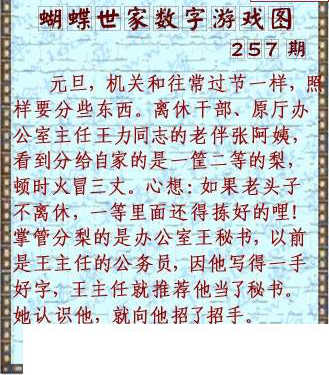 蝴蝶世家数字游戏图
257期
元旦，机关和往常过节一样，照
样要分些东西。离休干部、原厅办
公室主任王力同志的老伴张阿姨，
看到分给自家的是一筐二等的梨，
顿时火冒三丈。心想：如果老头子
不离休，一等里面还得拣好的哩！
掌管分梨的是办公室王秘书，以前
是王主任的公务员，因他写得一手
好字，王主任就推荐他当了秘书。
她认识他，就向他招了招手。